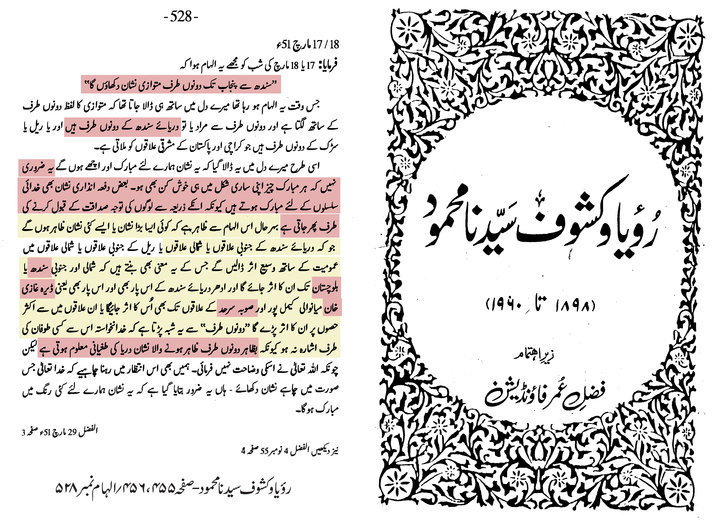 -528-
17/18 مارچ 51ء
فرمایا: 17 یا 18 مارچ کی شب کو مجھے یہ الہام ہوا کہ
"سندھ سے پنجاب تک دونوں طرف متوازی نشان دکھاؤں گا"
جس وقت یہ الہام ہو رہا تھا میرے دل میں ساتھ ہی ڈالا جاتا تھا کہ متوازی کا لفظ دونوں طرف
کے ساتھ لگتا ہے اور دونوں طرف سے مراد یا تو دریائے سندھ کے دونوں طرف ہیں اور یا ریل یا
سڑک کے دونوں طرف ہیں جو کراچی اور پاکستان کے مشرقی علاقوں کو ملاتی ہے۔
اسی طرح میرے دل میں یہ ڈالا گیا کہ یہ نشان ہمارے لئے مبارک اور اچھے ہوں گے یہ ضروری
نہیں کہ ہر مبارک چیز اپنی ساری شکل میں ہی خوش کن بھی ہو۔ بعض دفعہ انذاری نشان بھی خدائی
سلسلوں کے لئے مبارک ہوتے ہیں کیونکہ انکے ذریعہ سے لوگوں کی توجہ صداقت کے قبول کرنے کی
طرف پھر جاتی ہے بہرحال اس الہام سے ظاہر ہے کہ کوئی ایسا بڑا نشان یا ایسے کئی نشان ظاہر ہوں گے
جو کہ دریائے سندھ کے جنوبی علاقوں یا شمالی علاقوں یا ریل کے جنوبی علاقوں یا شمالی علاقوں میں
عمومیت کے ساتھ وسیع اثر ڈالیں گے جس کے یہ معنے بھی بنتے ہیں کہ شمالی اور جنوبی سندھ یا
بلوچستان تک ان کا اثر جائے گا اور ادھر دریائے سندھ کے اس پار بھی اور اس پار بھی یعنی ڈیرہ غازی
خان میانوالی کیمل پور اور صوبہ سرحد کے علاقوں تک بھی اُس کا اثر جائیگا یا ان علاقوں میں سے اکثر
حصوں پر ان کا اثر پڑے گا "دونوں طرف" سے یہ شبہ پڑتا ہے کہ خدانخواستہ اس سے کسی طوفان کی
طرف اشارہ نہ ہو کیونکہ بظاہر دونوں طرف ظاہر ہونے والا نشان دریا کی طغیانی معلوم ہوتی ہے لیکن
چونکہ اللہ تعالیٰ نے اسکی وضاحت نہیں فرمائی۔ ہمیں بھی اس انتظار میں رہنا چاہیے کہ خدا تعالیٰ جس
صورت میں چاہے نشان دکھائے - ہاں یہ ضرور بتایا گیا ہے کہ یہ نشان ہمارے لئے کئی رنگ میں
مبارک ہو گا۔
الفضل 29 مارچ 51ء صفحہ 3
نیز دیکھیں الفضل 4 نومبر 55 صفحہ 4
رؤیا و کشوف سیدنا محمود – صفحہ ۴۵۵، ۴۵۶ / الہام نمبر ۵۲۸
رؤیا و کشوف سیّدنا محمود
(۱۸۹۸ تا ۱۹۶۰)
زیرِ اہتمام
فضلِ عمر فاؤنڈیشن